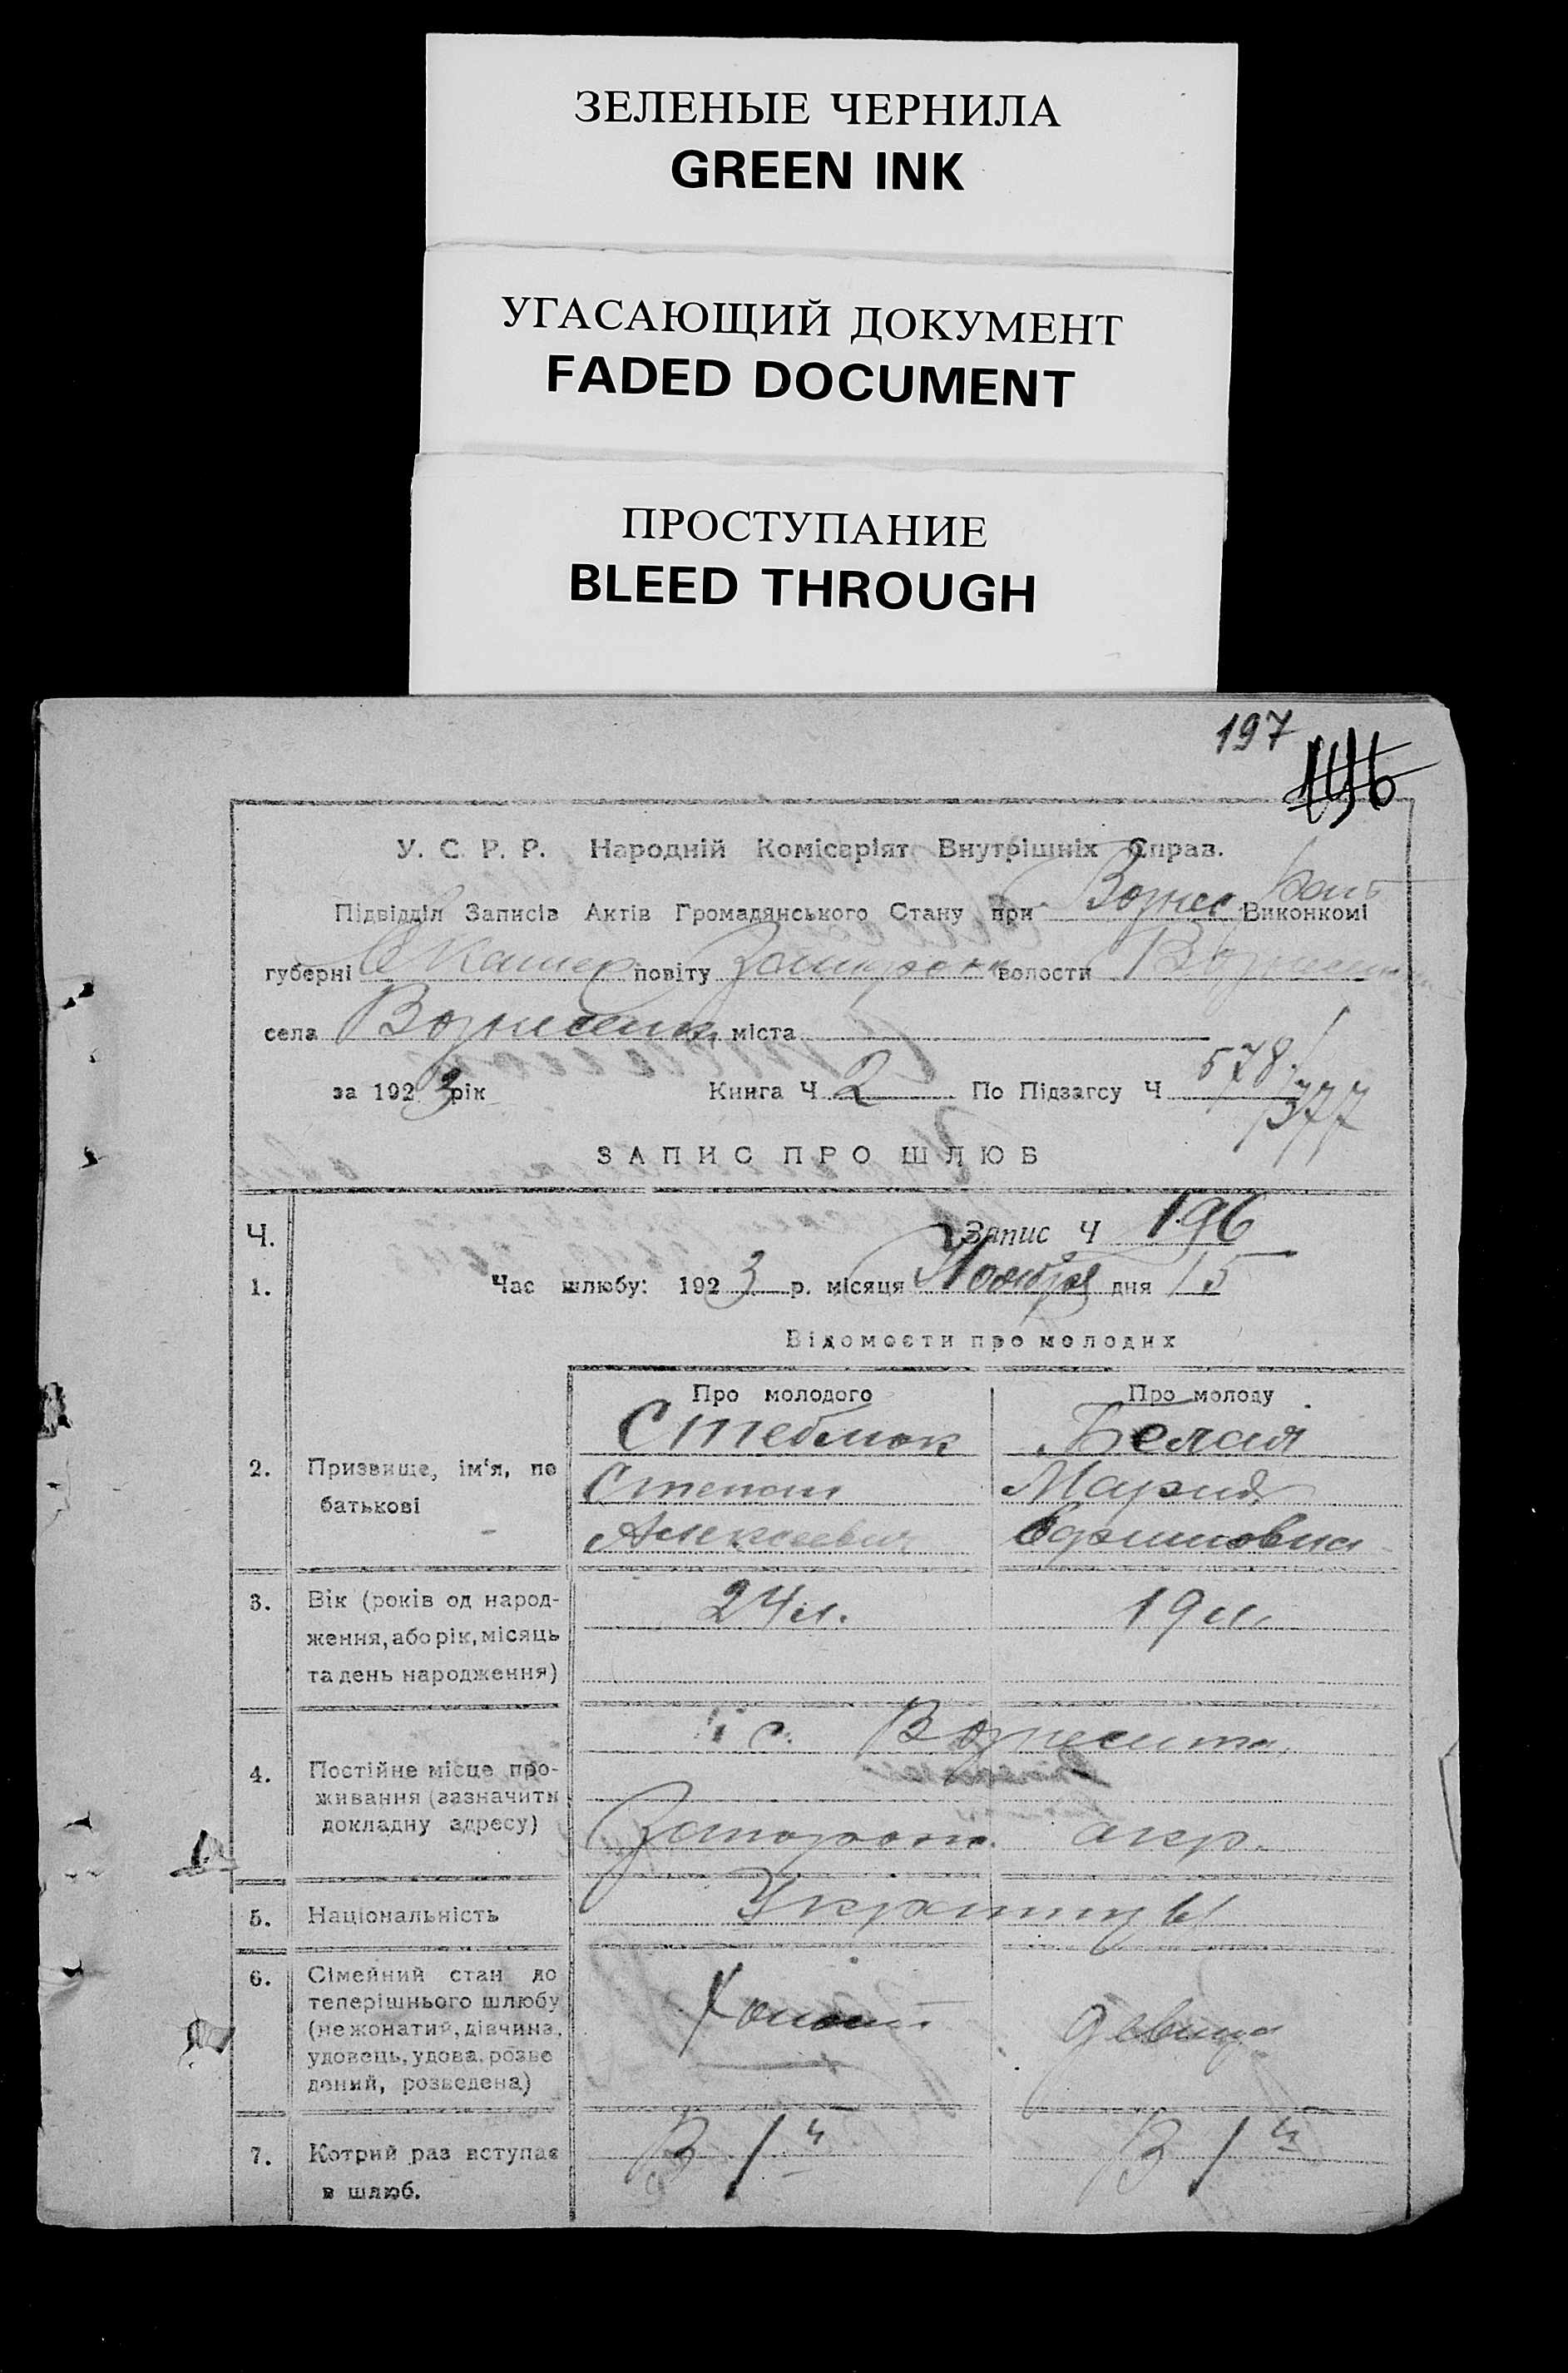 ЗЕЛЕНЫЕ ЧЕРНИЛА
GREEN INK
УГАСАЮЩИЙ ДОКУМЕНТ
FADED DOCUMENT
ПРОСТУПАНИЕ
BLEED THROUGH
197
У. С. Р. Р. Народній Комісаріят Внутрішніх Справ.
Підвідділ Записів Актів Громадянського Стану при Вознес. Виконкомі
губерні повіту волости
села міста
за 1923 рік Книга Ч 2 По Підзагсу Ч 578/377
ЗАПИС ПРО ШЛЮБ
Ч. Запис Ч 196
1. Час шлюбу: 1923 р. місяця Ноября дня 15
Відомости про молодих
Про молодого Про молоду
Белая
2. Призвище, ім'я, по Степан Мария
батькові Алексеевич
3. Вік (років од народ- 24 л. 19 л.
ження, або рік, місяць
та день народження)
с. Вознесенка
4. Постійне місце про-
живання (зазначити
докладну адресу) Запорож. окр.
5. Національність Украинцы
6. Сімейний стан до
теперішнього шлюбу Холост девица
(не жонатий, дівчина,
удовець, удова, розве
дений, розведена)
7. Котрий раз вступає В 1й В 1й
в шлюб.